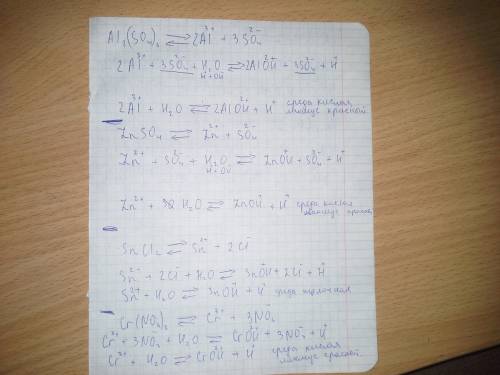 Al₂(SO₄)₃ ⇄ 2Al³⁺ + 3SO₄²⁻
2Al³⁺ + 3SO₄²⁻ + H₂O ⇄ 2AlOH²⁺ + 3SO₄²⁻ + H⁺
H⁺OH⁻
2Al³⁺ + H₂O ⇄ 2AlOH²⁺ + H⁺ среда кислая
лакмус красный
ZnSO₄ ⇄ Zn²⁺ + SO₄²⁻
Zn²⁺ + SO₄²⁻ + H₂O ⇄ ZnOH⁺ + SO₄²⁻ + H⁺
H⁺OH⁻
Zn²⁺ + H₂O ⇄ ZnOH⁺ + H⁺ среда кислая
лакмус красный
SnCl₂ ⇄ Sn²⁺ + 2Cl⁻
Sn²⁺ + 2Cl⁻ + H₂O ⇄ SnOH⁺ + 2Cl⁻ + H⁺
Sn²⁺ + H₂O ⇄ SnOH⁺ + H⁺ среда
Cr(NO₃)₃ ⇄ Cr³⁺ + 3NO₃⁻
Cr³⁺ + 3NO₃⁻ + H₂O ⇄ CrOH²⁺ + 3NO₃⁻ + H⁺
Cr³⁺ + H₂O ⇄ CrOH²⁺ + H⁺ среда кислая
лакмус красный